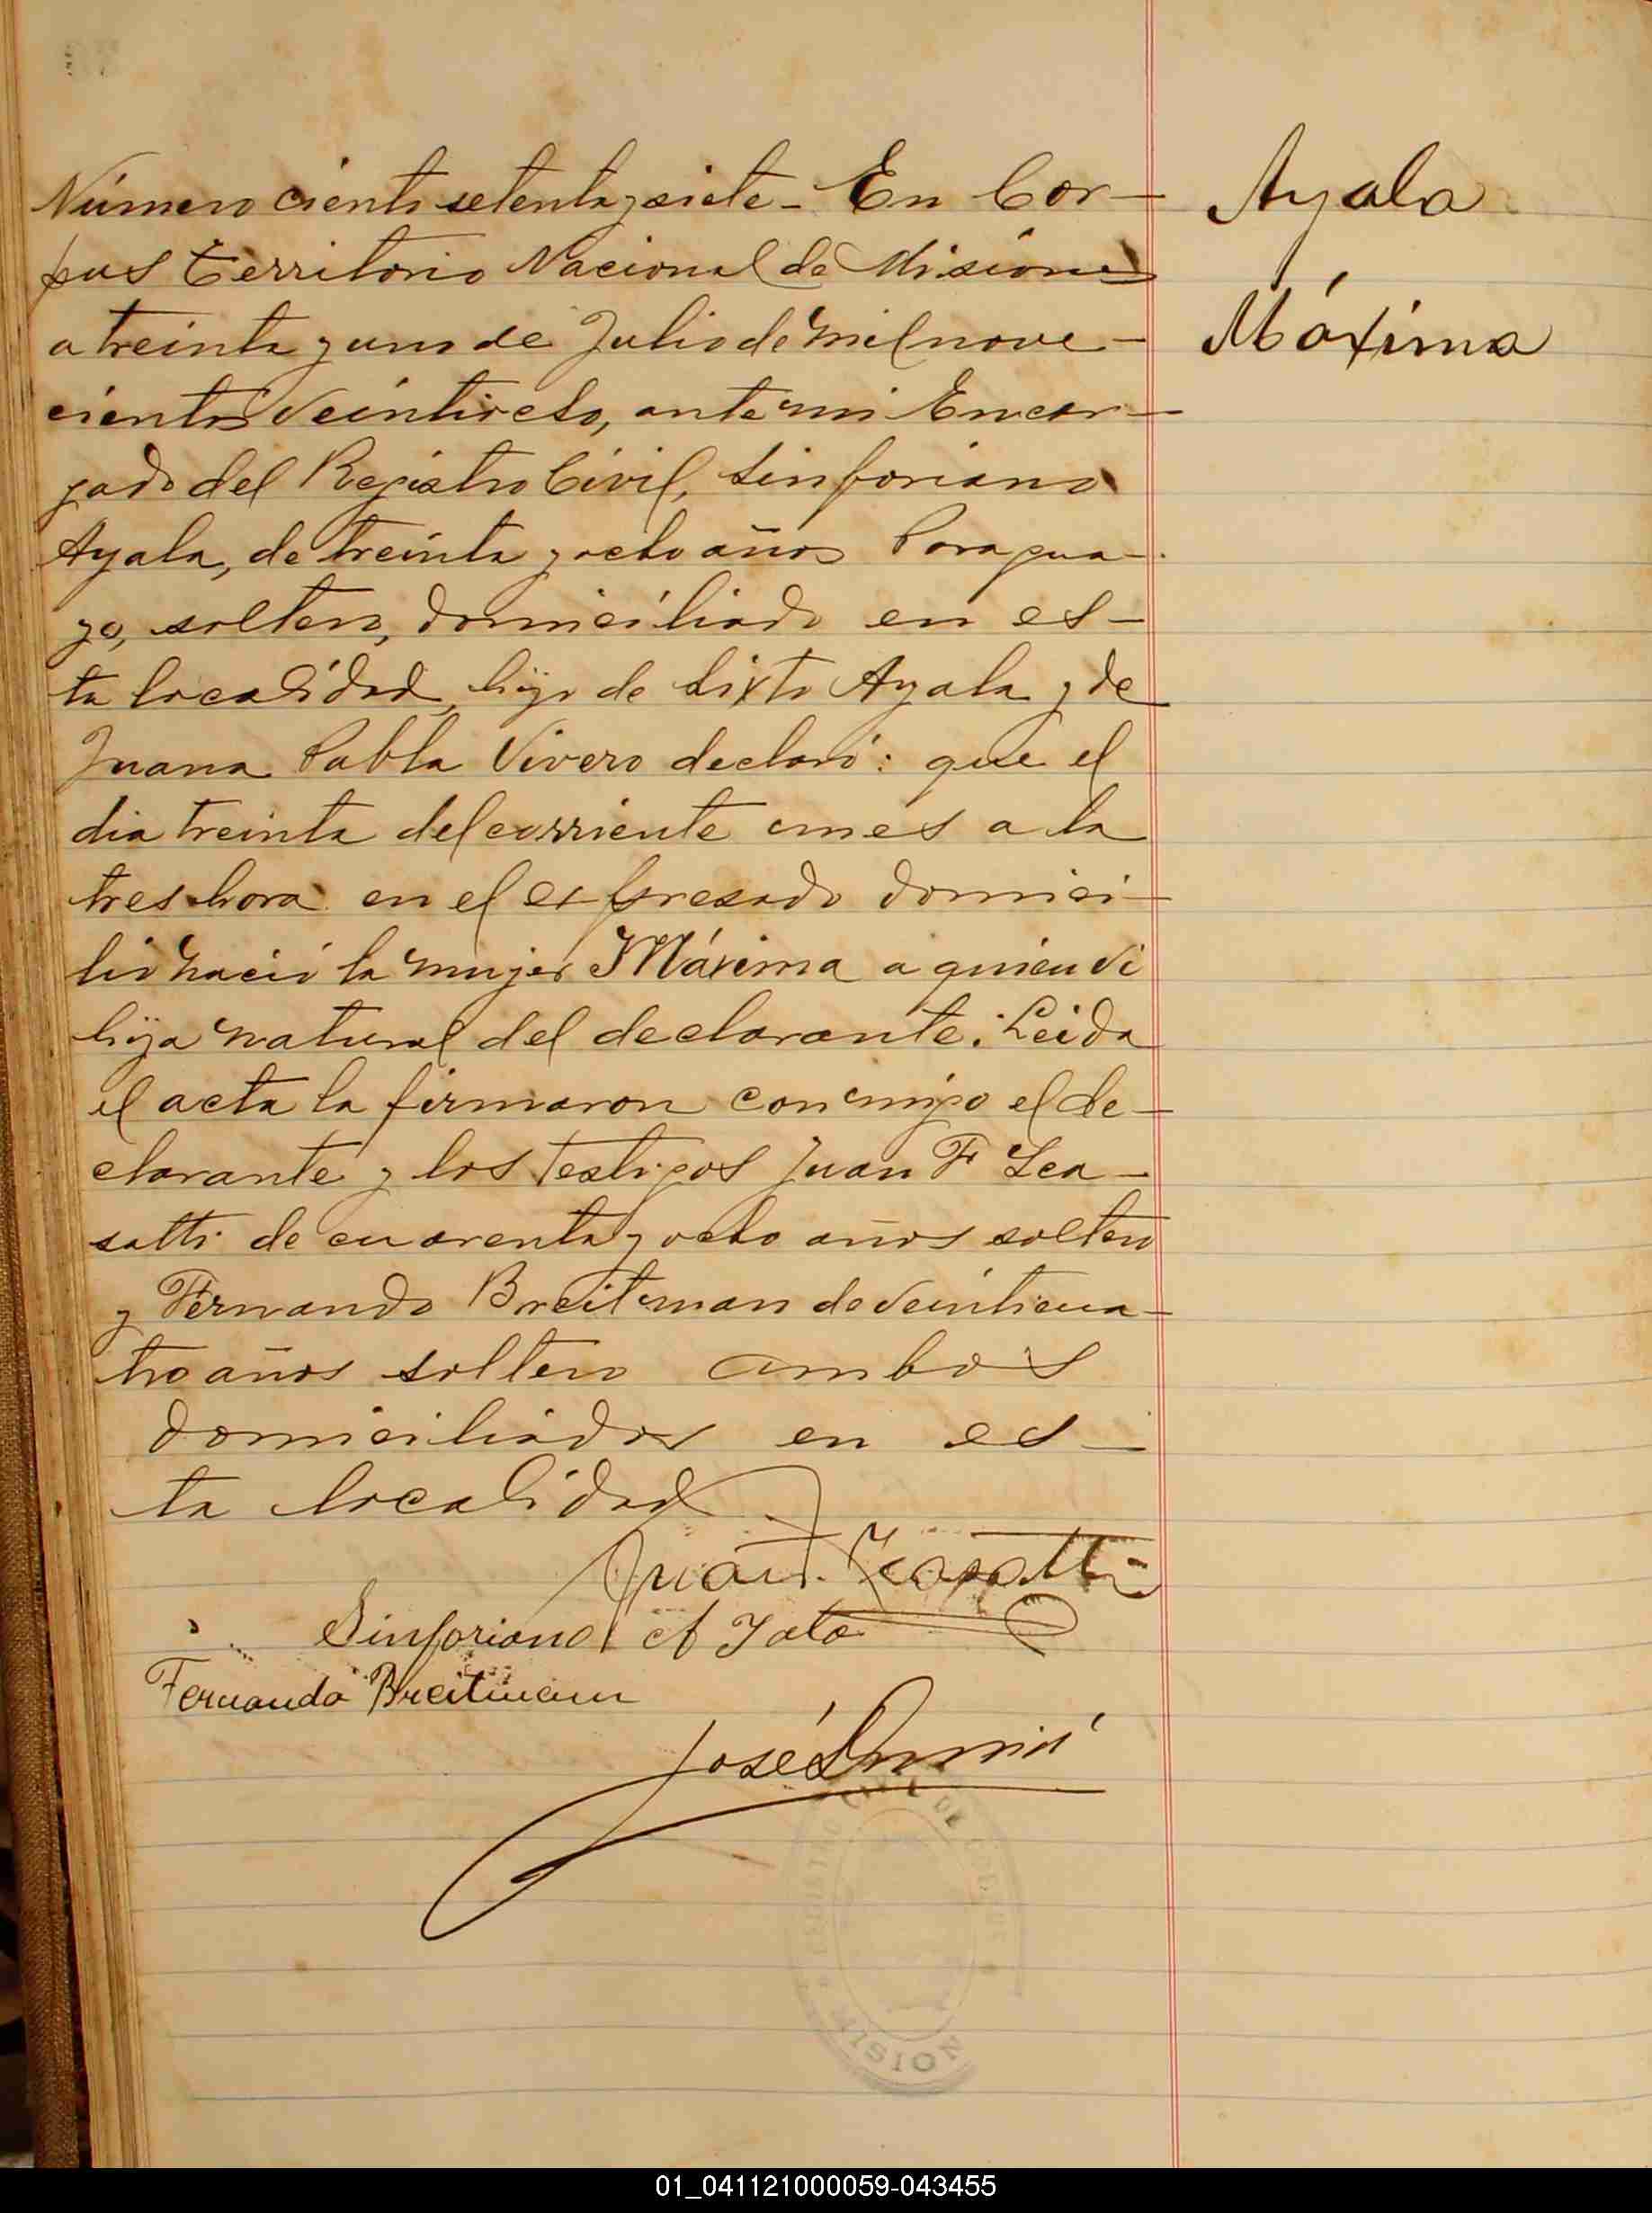 Número ciento setenta y siete - En Cor-
pus territorio Nacional de Misiones
a treinta y uno de Julio de mil nove-
cientos veintiocho, ante mi Encar-
gado del Registro Civil, Sinforiano
Ayala, de treinta y ocho años Paragua-
yo, soltero, domiciliado en es-
ta localidad, hijo de Sixto Ayala y de
Juana Pabla Vivero declaró: que el
dia treinta del corriente mes a la
tres hora en el expresado domici-
lio nació la mujer Máxima a quien vi
hija natural del declarante. Leida
el acta la firmaron conmigo el de-
clarante y los testigos Juan F
satti de cuarenta y ocho años soltero
y Fernando Breitman de veinticua-
tro años soltero ambos
domiciliados en es-
ta localidad
Juan F.
Sinforiano Ayala
Fernando Breitmann
José
Ayala
Máxima
MISION
01_041121000059-043455